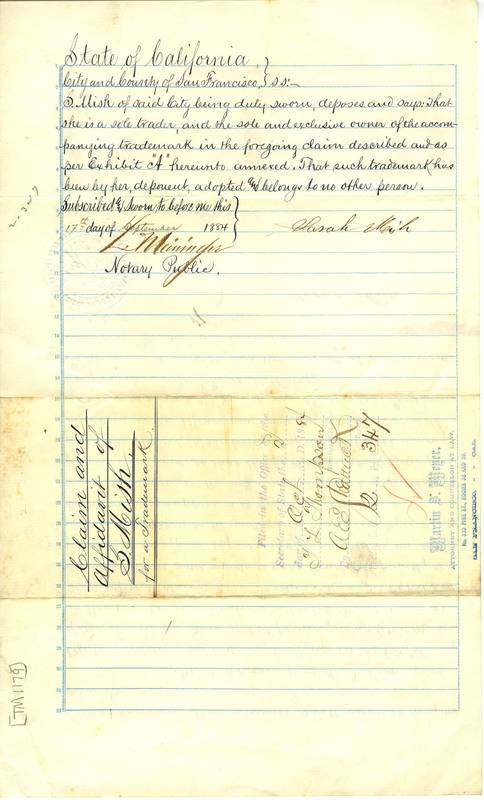 State of California, }
City and County of San Francisco, } S.S:-
S. Mish of said City being duly sworn, deposes and says: That
she is a sole trader, and the sole and exclusive owner of the accom-
panying trademark in the foregoing claim described and as
per Exhibit "A" hereunto annexed. That such trademark has
been by her, deponent, adopted & belongs to no other person.
Subscribed & sworn to before me this }
17th day of September 1884 }
Sarah Mish
Notary Public.
2.347
Claim and
Affidavit of
S. Mish.
for a Trademark
Filed in the Office of the
Secretary of State the 2
Oct A.D. 1884
Thompson
2 347
Martin S. Meyer,
ATTORNEY AND COUNSELOR AT LAW,
SAN FRANCISCO, - - CAL.
[TM1179]